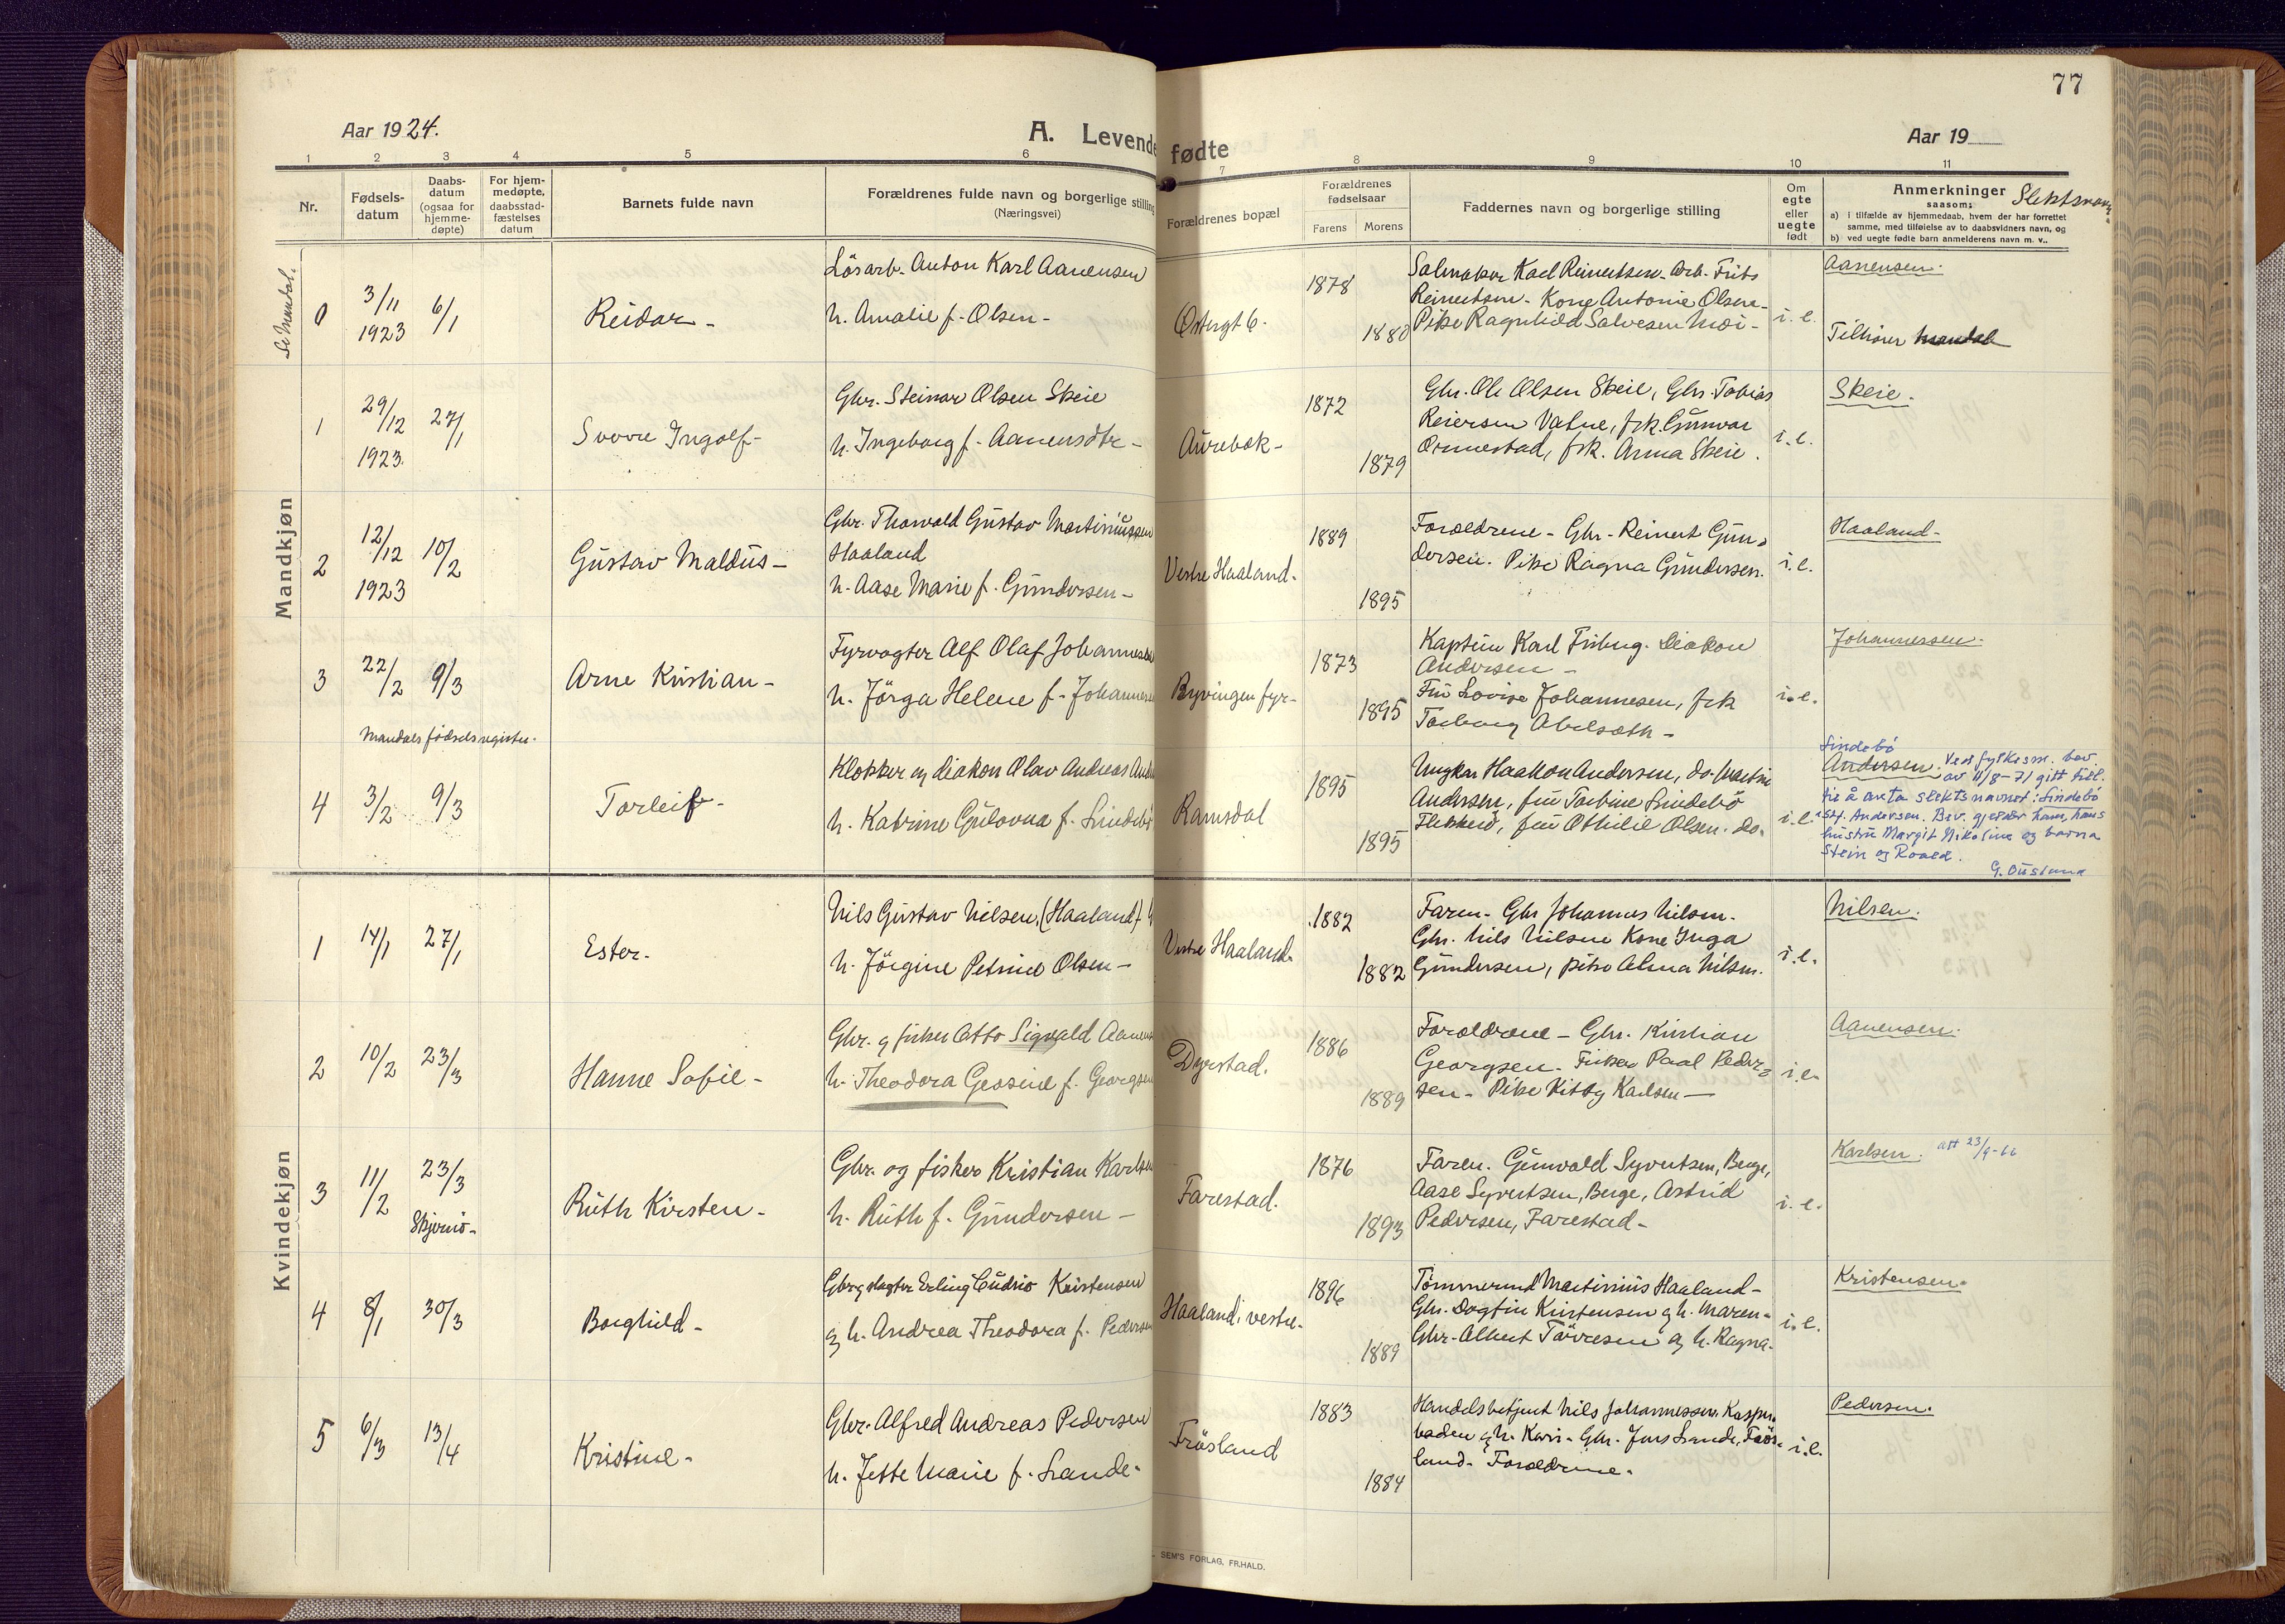 77
Aar 1924.
A. Levende fødte
Aar 19
1 2 3 4 5 6 7 8 9 10 11
Nr.
Fødsels-
datum
Daabs-
datum
(ogsaa for
hjemme-
døpte)
For hjem-
medøpte,
daabsstad-
fæstelses
datum
Barnets fulde navn
Forældrenes fulde navn og borgerlige stilling
(Næringsvei)
Forældrenes bopæl
Forældrenes
fødselsaar
Farens Morens
Faddernes navn og borgerlige stilling
Om
egte
eller
uegte
født
Anmerkninger
saasom:
a) i tilfælde av hjemmedaab, hvem der har forrettet
samme, med tilføielse av to daabsvidners navn, og
b) ved uegte fødte barn anmelderens navn m. v..
Slektsnavn
Mandkjøn
Se Mandal.
0
3/11
1923
6/1
Reidar -
Lösarb. Anton Karl Aanensen
h. Amalie f. Olsen -
Østergt 6.
1878
1880
Salmaker Karl Reinertsen. Arb. Frits
Reinertsen - Kone Antonie Olsen -
Pike Ragnhild Salvesen Moi -
i. e.
Aanensen.
Tilhører Mandal
1
29/12
1923.
27/1
Sverre Ingolf -
Gbr. Steinar Olsen Skeie
h. Ingeborg f. Aanensdtr -
Aurebæk -
1872
1879
Gbr. Ole Olsen Skeie, Gbr. Tobias
Reiersen Vatne, frk. Gunvor
Ormestad, frk. Anna Skeie.
i. e.
Skeie.
2
12/12
1923
10/2
Gustav Maldus -
Gbr. Thorvald Gustav Martiniussen
Haaland
h. Aase Marie f. Gundersen -
Vestre Haaland.
1889
1895
Forældrene - Gbr. Reinert Gun-
dersen. Pike Ragna Gundersen.
i. e.
Haaland -
3
22/2
9/3
Arne Kristian -
Fyrvogter Alf Olaf Johannesen
h. Jörga Helene f. Johannesen
Ryvingen fyr -
1873
1895
Kaptein Karl Friberg. Diakon
Andersen -
Fru Lovise Johannesen, frk
Torborg Abelsæth -
i. e.
Johannessen.
Mandals fødselsregister.
4
3/2
9/3
Torleif -
Klokker og diakon Olav Andreas Ande
h. Katrine Gulovna f. Lindebö
Ramsdal
1895
1895
Ungkar Haakon Andersen, do. Martin
Andersen, fru Torbine Lindebö
Flekkerö, fru Othilie Olsen. do.
i. e.
Lindebö
Andersen. Ved fylkesm. bev.
av 11/8-71 gitt till.
til å anta slektsnavnet: Lindebö
istf. Andersen. Bev. gjelder ham, hans
hustru Margit Nikoline og barna
Stein og Roald.
G. Øusland
Kvindekjøn
1
14/1
27/1
Ester.
Nils Gustav Nilsen, (Haaland)
h. Jörgine Petrine Olsen -
Vestre Haaland.
1882
1882
Faren - Gbr Johannes Nilsen.
Gbr. Nils Nilsen Kone Inga
Gundersen, pike Alma Nilsen.
i. e.
Nilsen.
2
10/2
23/3
Hanne Sofie -
Gbr. og fisker Otto Sigvald Aanens
h. Theodora Geosine f. Georgsen
Dyrstad.
1886
1889
Forældrene - Gbr. Kristian
Georgsen. Fisker Paal Peder-
sen - Pike Kitty Karlsen -
i. e.
Aanensen.
3
11/2
23/3
Skjernö -
Ruth Kirsten -
Gbr. og fisker Kristian Karlsen
h. Ruth f. Gundersen -
Farestad.
1876
1893
Faren. Gunvald Syvertsen, Berge,
Aase Syvertsen, Berge, Astrid
Pedersen, Farestad -
i. e.
Karlsen. att 23/9-66
4
8/1
30/3
Borghild -
Gbr og slagter Erling Cudrio Kristensen
og h. Andrea Theodora f. Pedersen
Haaland, vestre -
1896
1889
Tömmermd Martinius Haaland -
Gbr. Dagfin Kristensen og h. Maren -
Gbr. Albert Törresen og h. Ragna -
i. e.
Kristensen.
5
6/3
13/4
Kristine -
Gbr. Alfred Andreas Pedersen
h. Jette Marie f. Lande -
Frösland
1883
1884
Handelsbetjent Nils Johannessen. Kasper-
baden og h. Kari - Gbr. Jens Lande, Frös-
land - Forældrene.
i. e.
Pedersen.
SEM'S FORLAG, FR.HALD.